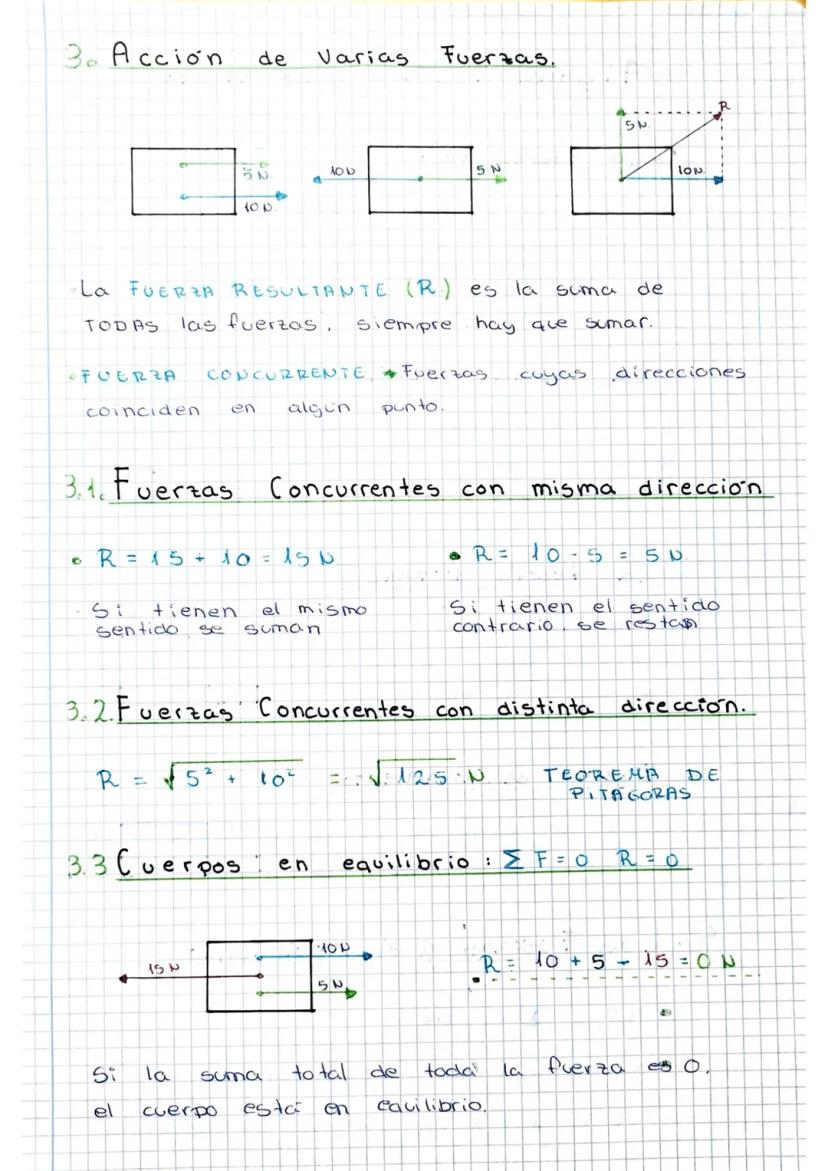 3. Acción de varias Fuerzas.
5 N
10 N
10 N
5 N
5 N
R
10 N
La FUERZA RESULTANTE (R) es la suma de
TODAS las fuerzas, siempre hay que sumar.
FUERZA CONCURRENTE → Fuerzas cuyas direcciones
coinciden en algún punto.
3.1. Fuerzas Concurrentes con misma dirección
• R = 15 + 10 = 15 N
Si tienen el mismo
sentido se suman
• R = 10 - 5 = 5 N
Si tienen el sentido
contrario, se restan
3.2. Fuerzas Concurrentes con distinta dirección.
R = √5² + 10² = √125 N TEOREMA DE
PITÁGORAS
3.3 Cuerpos en equilibrio: Σ F = 0 R = 0
15 N
10 N
5 N
R = 10 + 5 - 15 = 0 N
Si la suma total de toda la fuerza es 0,
el cuerpo está en equilibrio.